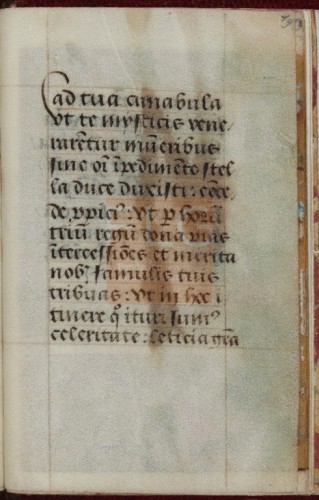 ad tua cunabula
vt te mysticis vene-
rarẽtur mũeribus
sine oĩ ĩpedimẽto stel
la duce duxisti: cõce
de ꝓpici⁹: vt ꝑ horũ
triũ regũ dona pias
ĩtercessiões et merita
nob̃ famulis tuis
tribuas: vt in hoc i
tinere q̊ ituri sum⁹
celeritate: leticia gr̃a